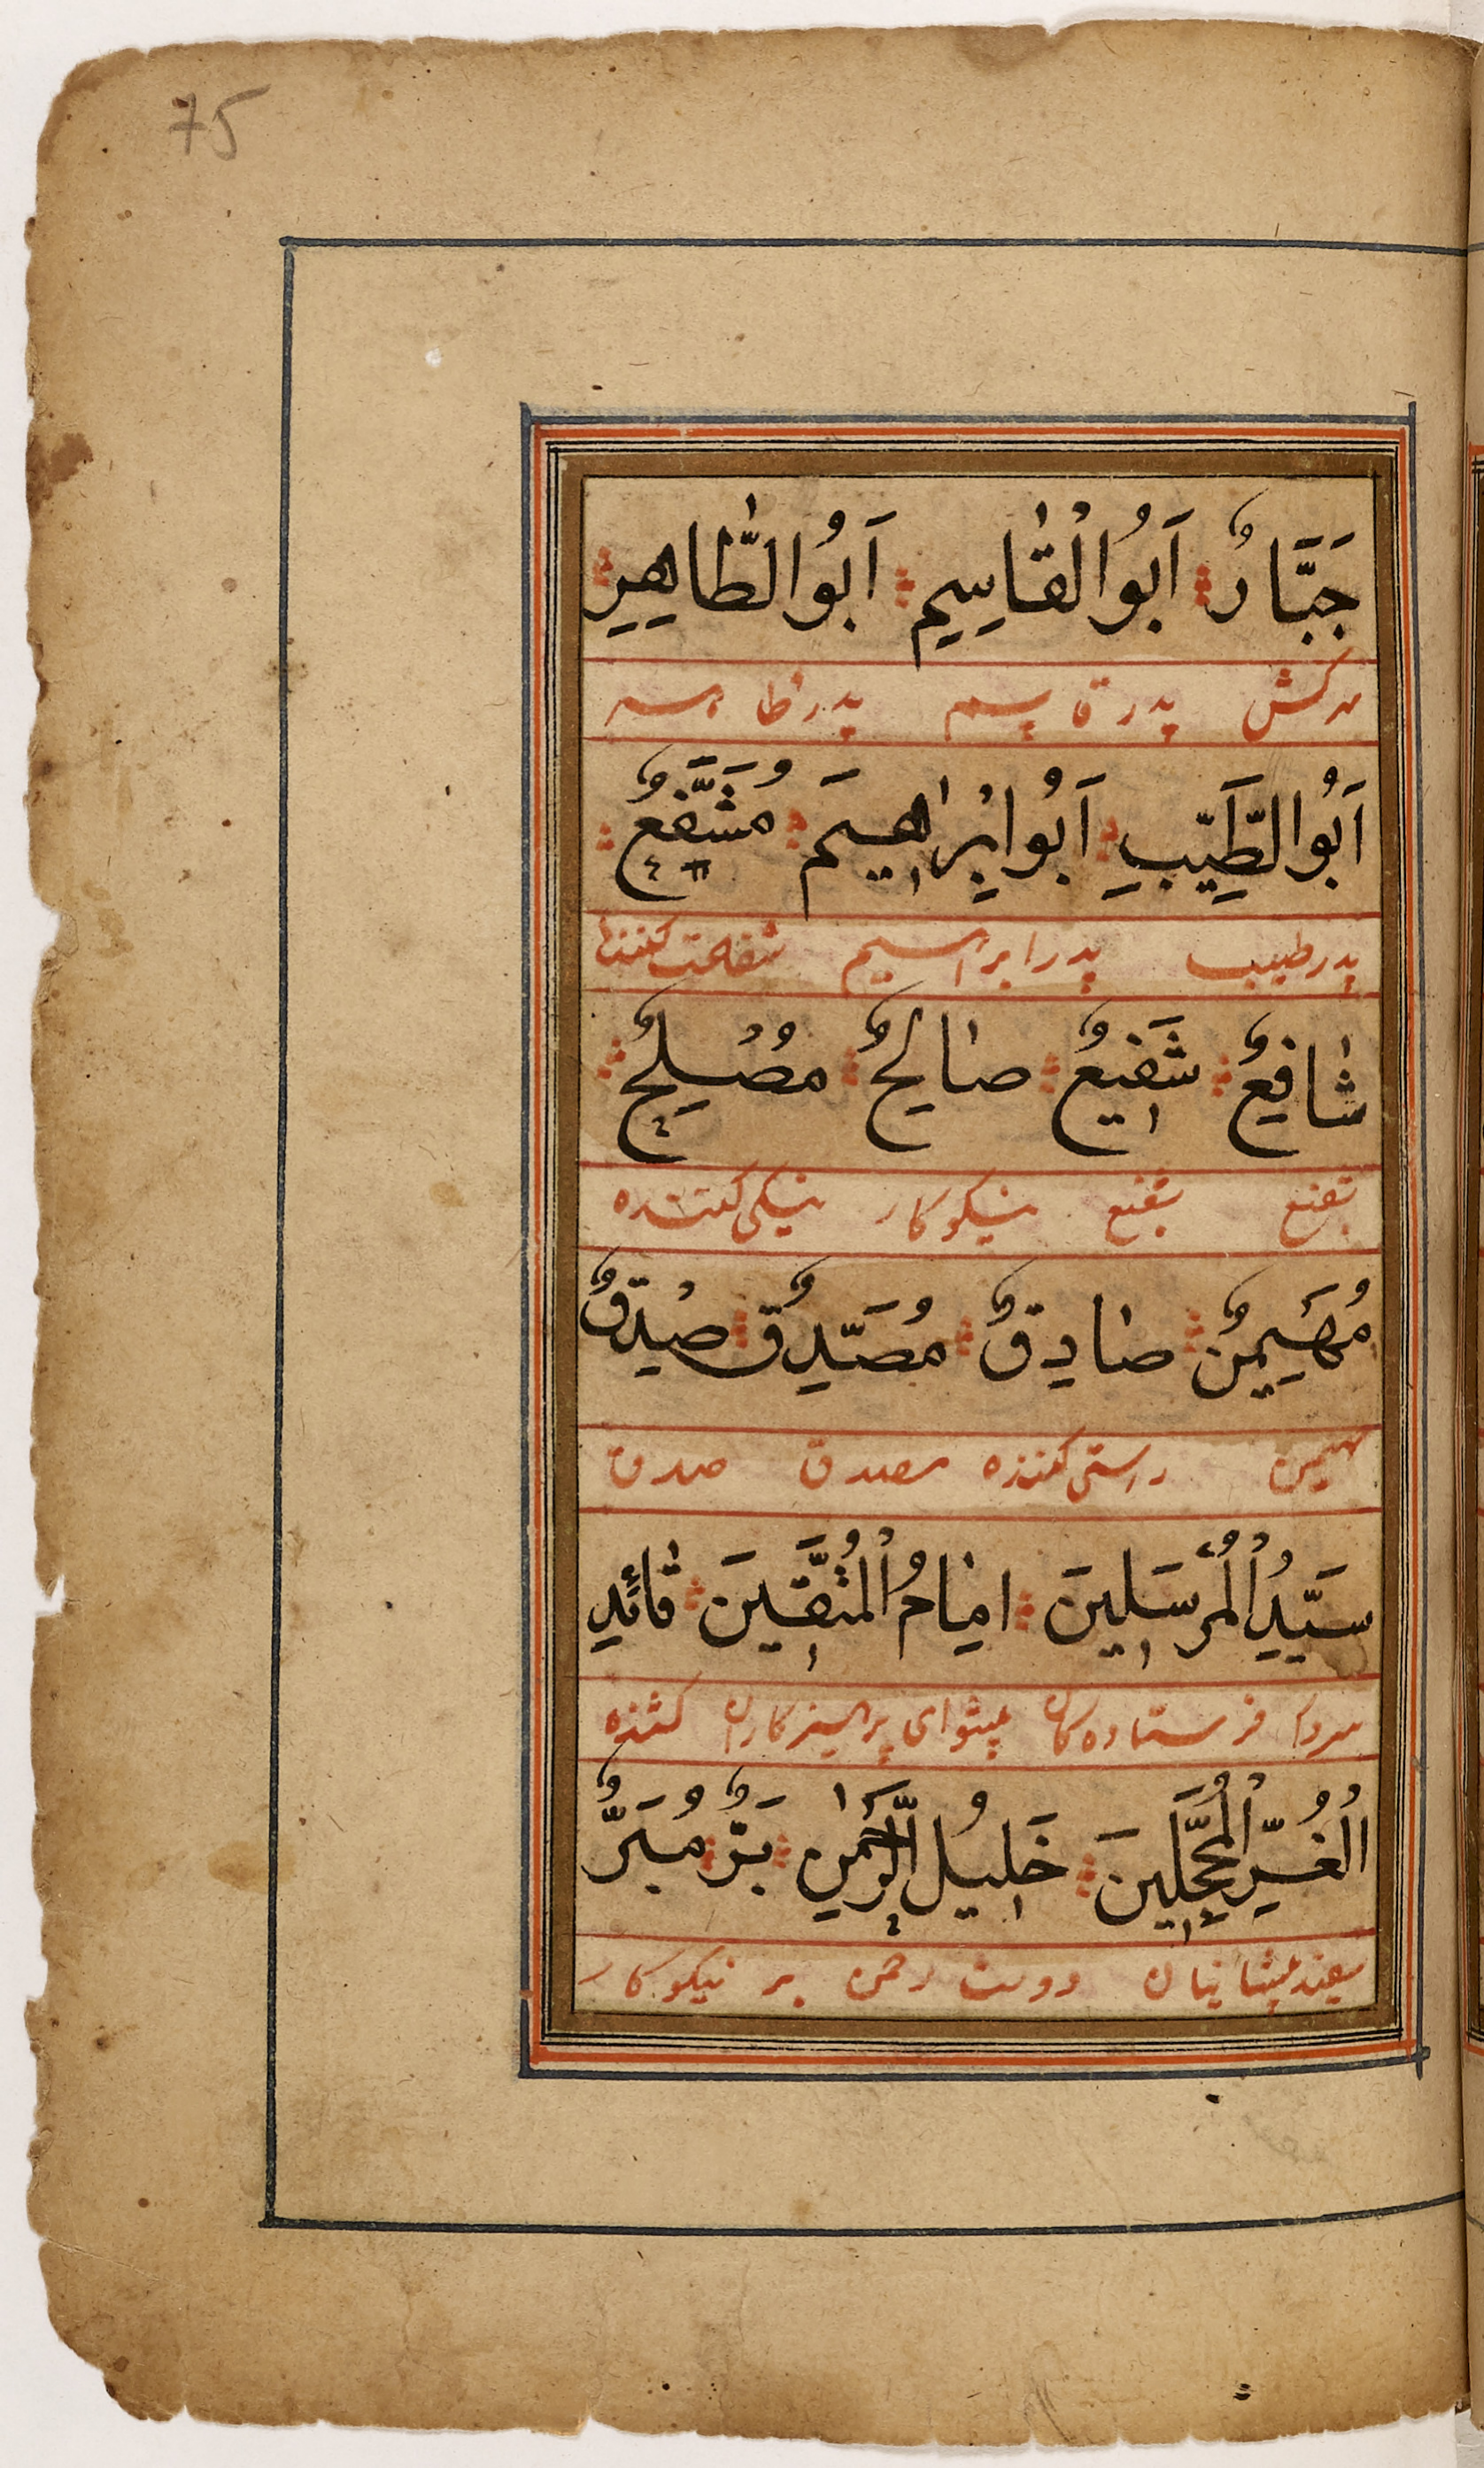 75
جَبَّارٌ اَبُوالْقٰاسِمِ اَبُوالطّٰاهِرِ
سرکش پدر قاسم پدر طاهر
اَبُوالطَّيِّبِ اَبُواِبْرٰاهِيمَ مُشَفَّعٌ
پدر طیب پدر ابراهیم شفاعت کننده
شٰافِعٌ شَفِيعٌ صٰالِحٌ مُصْلِحٌ
شفیع شفیع نیکوکار نیکی کننده
مُهَيْمِنٌ صٰادِقٌ مُصَدِّقٌ صِدْقٌ
مهیمن راستی کننده مصدق صدق
سَيِّدُالْمُرْسَلِينَ اِمٰامُ الْمُتَّقِينَ قٰائِدِ
سردار فرستادگان پیشوای پرهیزکاران کشنده
الْغُرِّالْمُحَجَّلِينَ خَلِيلُ الرَّحْمٰنِ بَرٌّ مُبَرٌّ
دوست رحمن بر نیکوکار